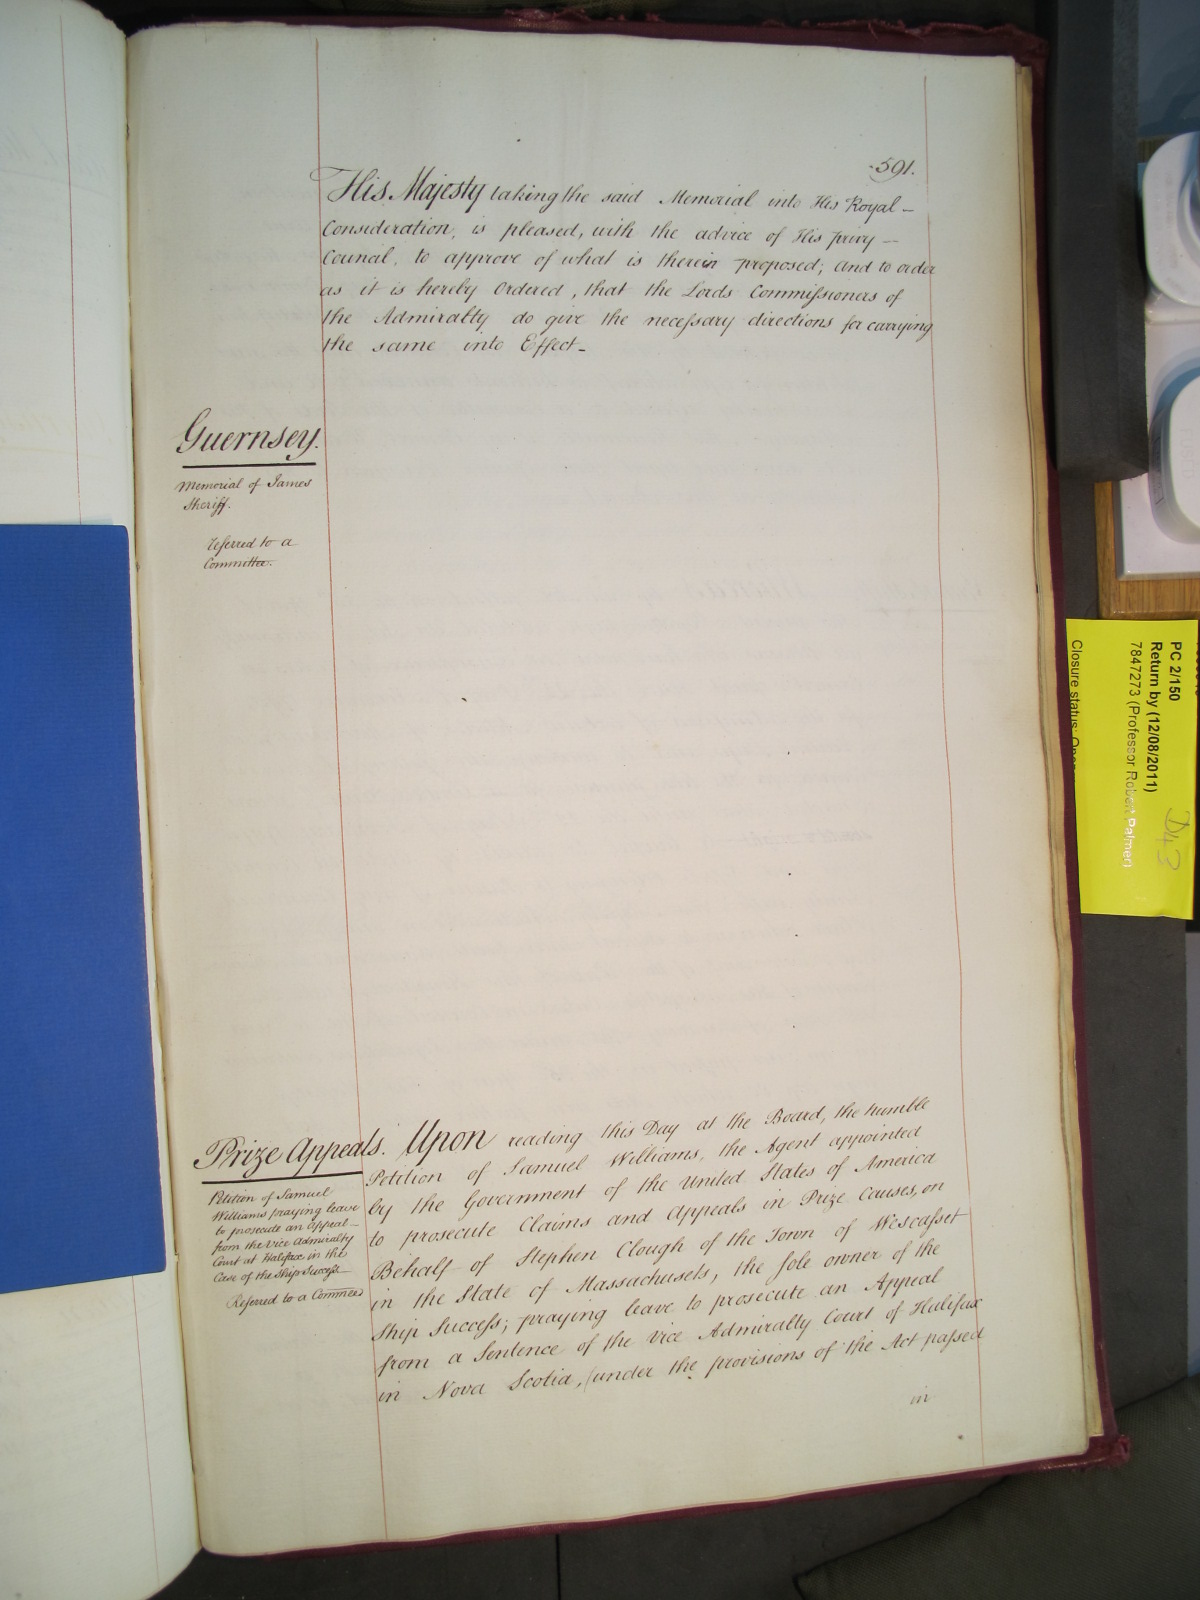 591.
His Majesty taking the said Memorial into His Royal –
Consideration, is pleased, with the advice of His Privy –
Council, to approve of what is therein proposed; and to order
as it is hereby Ordered, that the Lords Commissioners of
the Admiralty do give the necessary directions for carrying
the same into Effect –
Guernsey.
Memorial of James
Sheriff.
referred to a
Committee.
Prize Appeals.
Petition of Samuel
Williams praying leave
to prosecute an appeal –
from the Vice Admiralty
Court at Halifax in the
Case of the Ship Success
Referred to a Commee
Upon reading this Day at the Board, the humble
Petition of Samuel Williams, the Agent appointed
by the Government of the United States of America
to prosecute Claims and Appeals in Prize Causes, on
Behalf of Stephen Clough of the Town of Wescasset
in the State of Massachusets, the sole owner of the
Ship Success; praying leave to prosecute an Appeal
from a Sentence of the Vice Admiralty Court of Halifax
in Nova Scotia, (under the provisions of the Act passed
in
PC 2/150
Return by (12/08/2011)
7847273 (Professor Robert Palmer)
Closure status: Open
D43